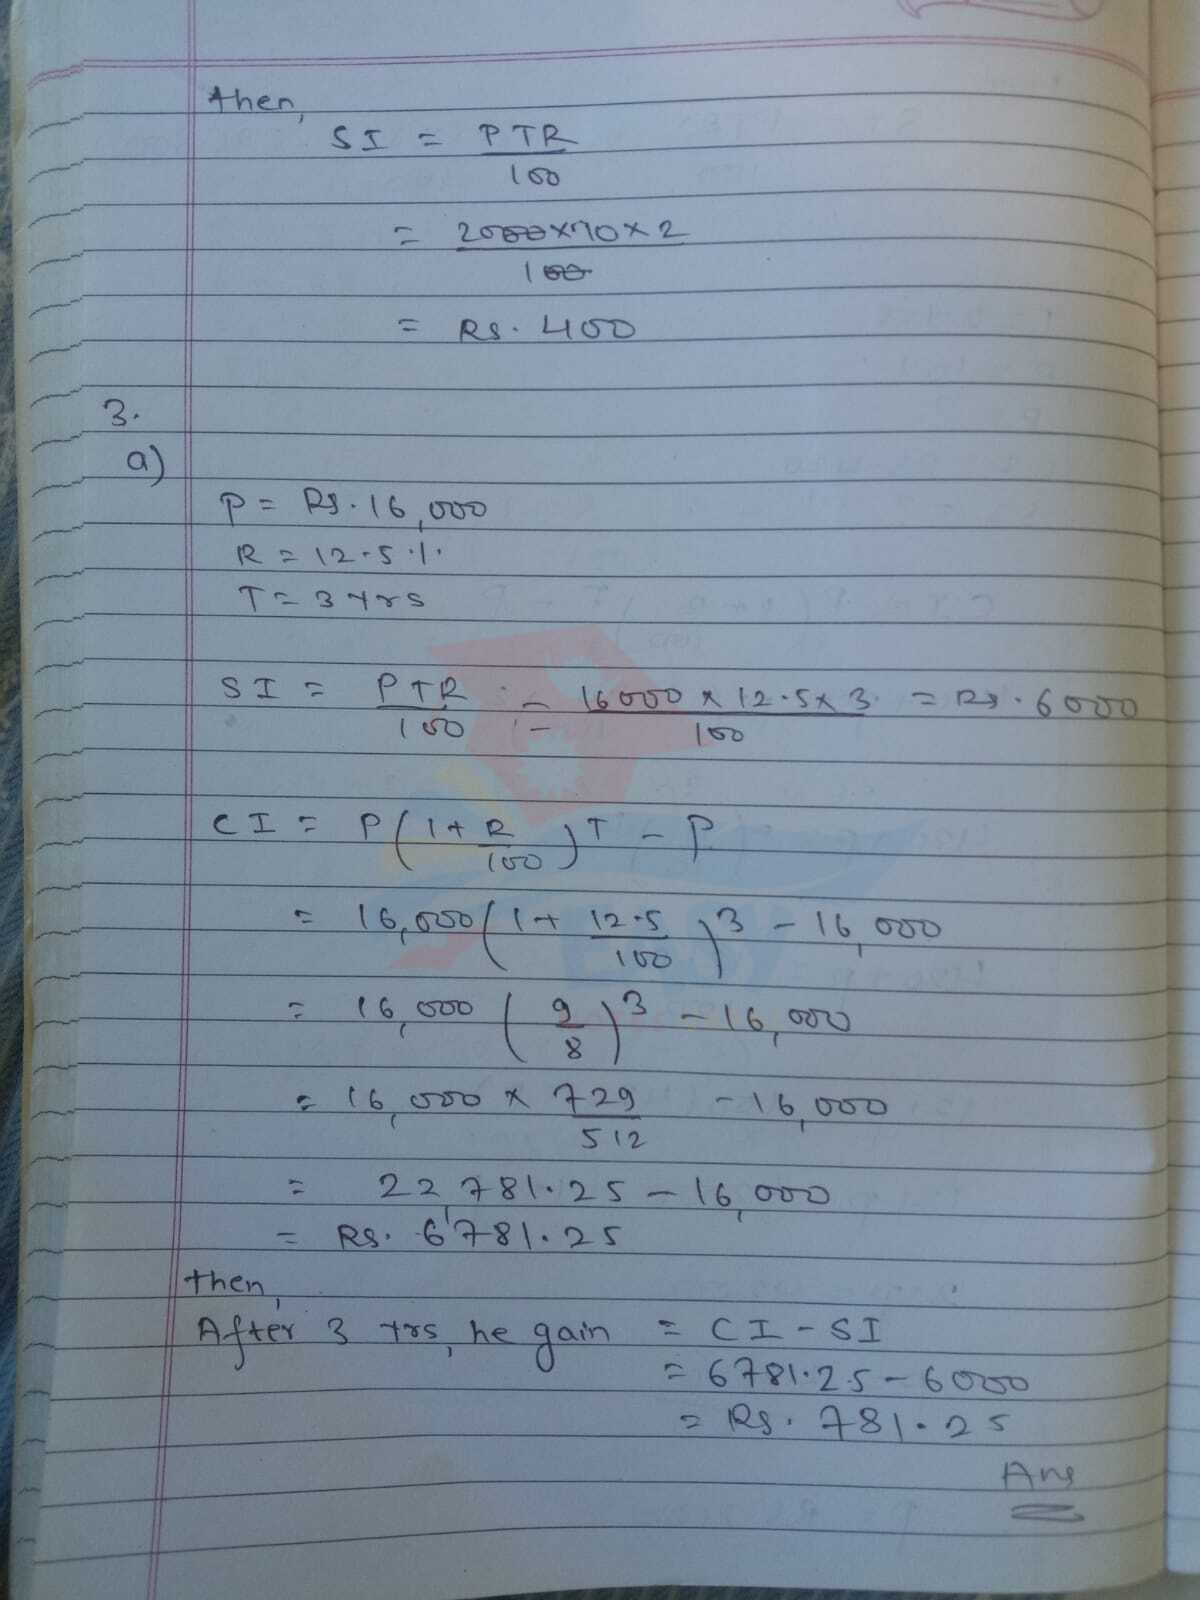 then,
SI = PTR/100
= 2000×10×2/100
= Rs. 400
3.
a)
P = Rs. 16,000
R = 12.5%
T = 3 yrs
SI = PTR/100 = 16000 × 12.5 × 3/100 = Rs. 6000
CI = P(1+R/100)^T - P
= 16,000(1+12.5/100)^3 - 16,000
= 16,000(9/8)^3 - 16,000
= 16,000 × 729/512 - 16,000
= 22,781.25 - 16,000
= Rs. 6781.25
then,
After 3 yrs, he gain = CI - SI
= 6781.25 - 6000
= Rs. 781.25
Ans